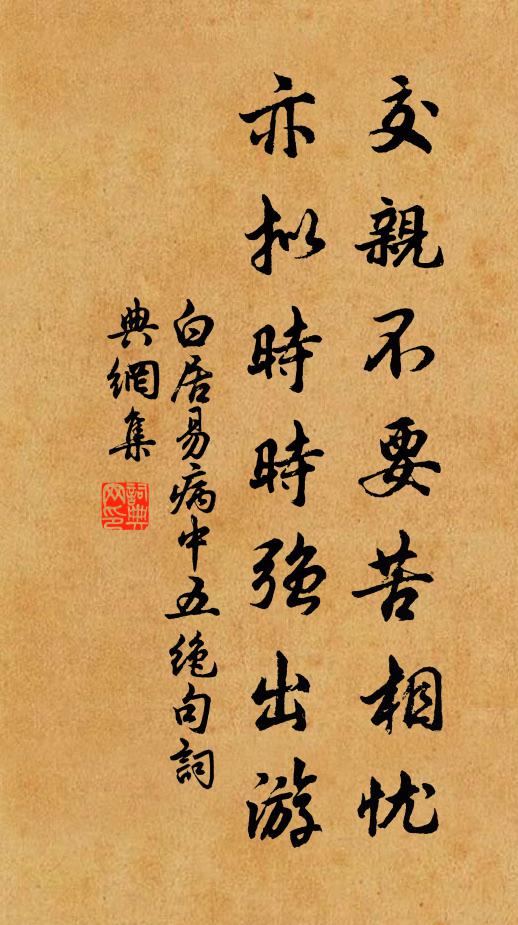 交親不要苦相忧
亦拟時時强出游
白居易病中五绝句詞
典網集
詞典
网印